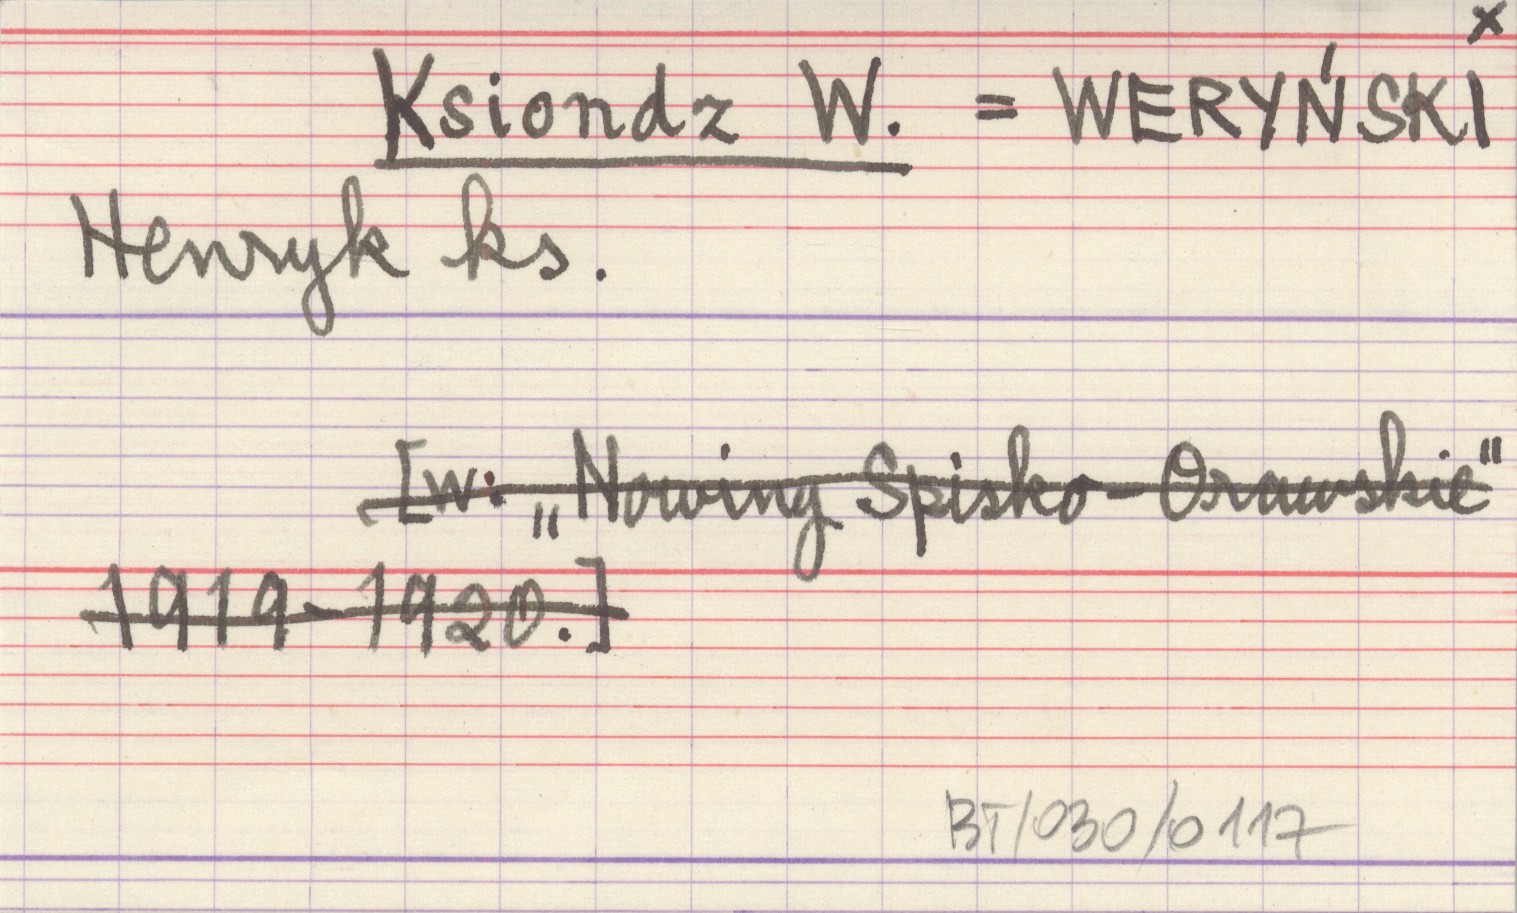 x
Ksiondz W. = WERYŃSKI
Henryk ks.
[w: „Nowiny Spisko-Orawskie"
1919-1920.]
BT/030/0117